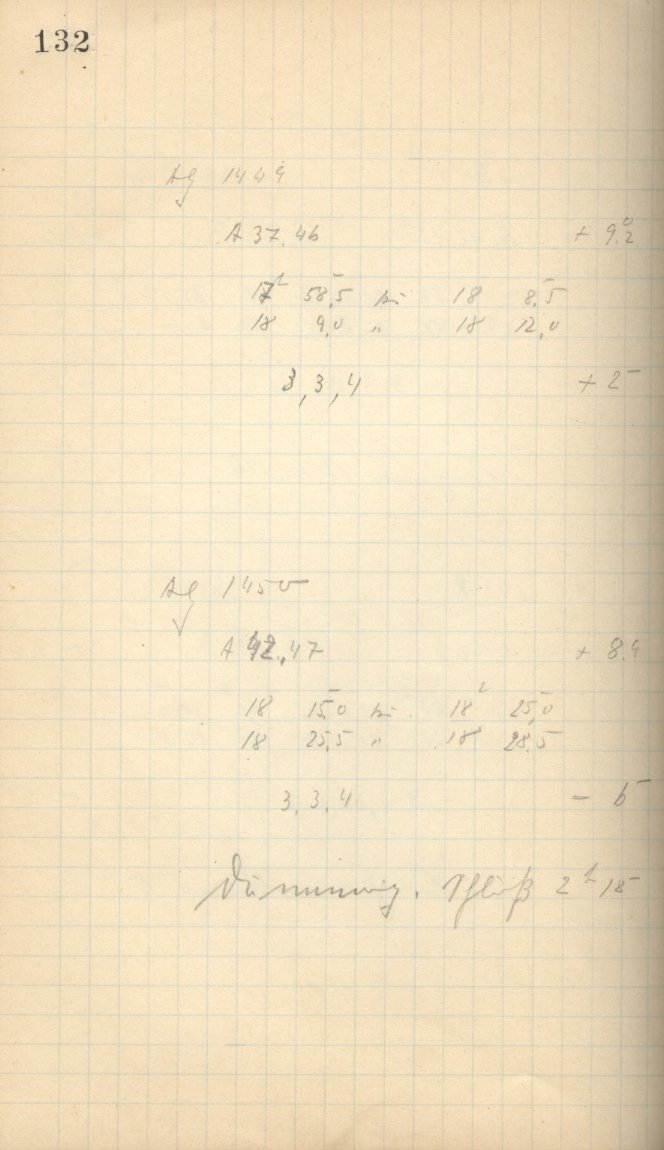 132
Ag 1449
A 37.46 + 9.2⁰
17ʰ 58,5 bis 18 8,5
18 9,0 " 18 12,0
3, 3, 4 + 2
Ag 1450
A 42.47 + 8.9
18 15,0 bis 18ʰ 25,0
18 25,5 " 18 28,5
3, 3, 4 - 6
Dämmerung. Schluß 2ʰ 18